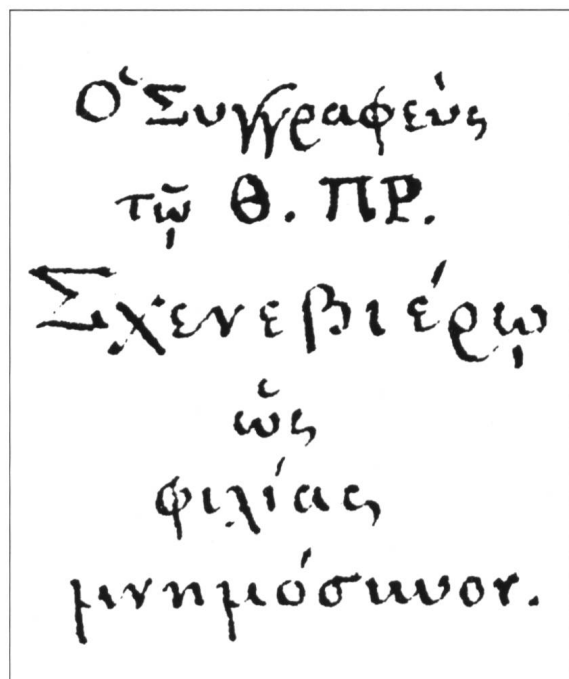 Ὁ Συγγραφεὺς
τῷ Θ. ΠΡ.
Σχενεβιέρῳ
ὡς
φιλίας
μνημόσυνον.